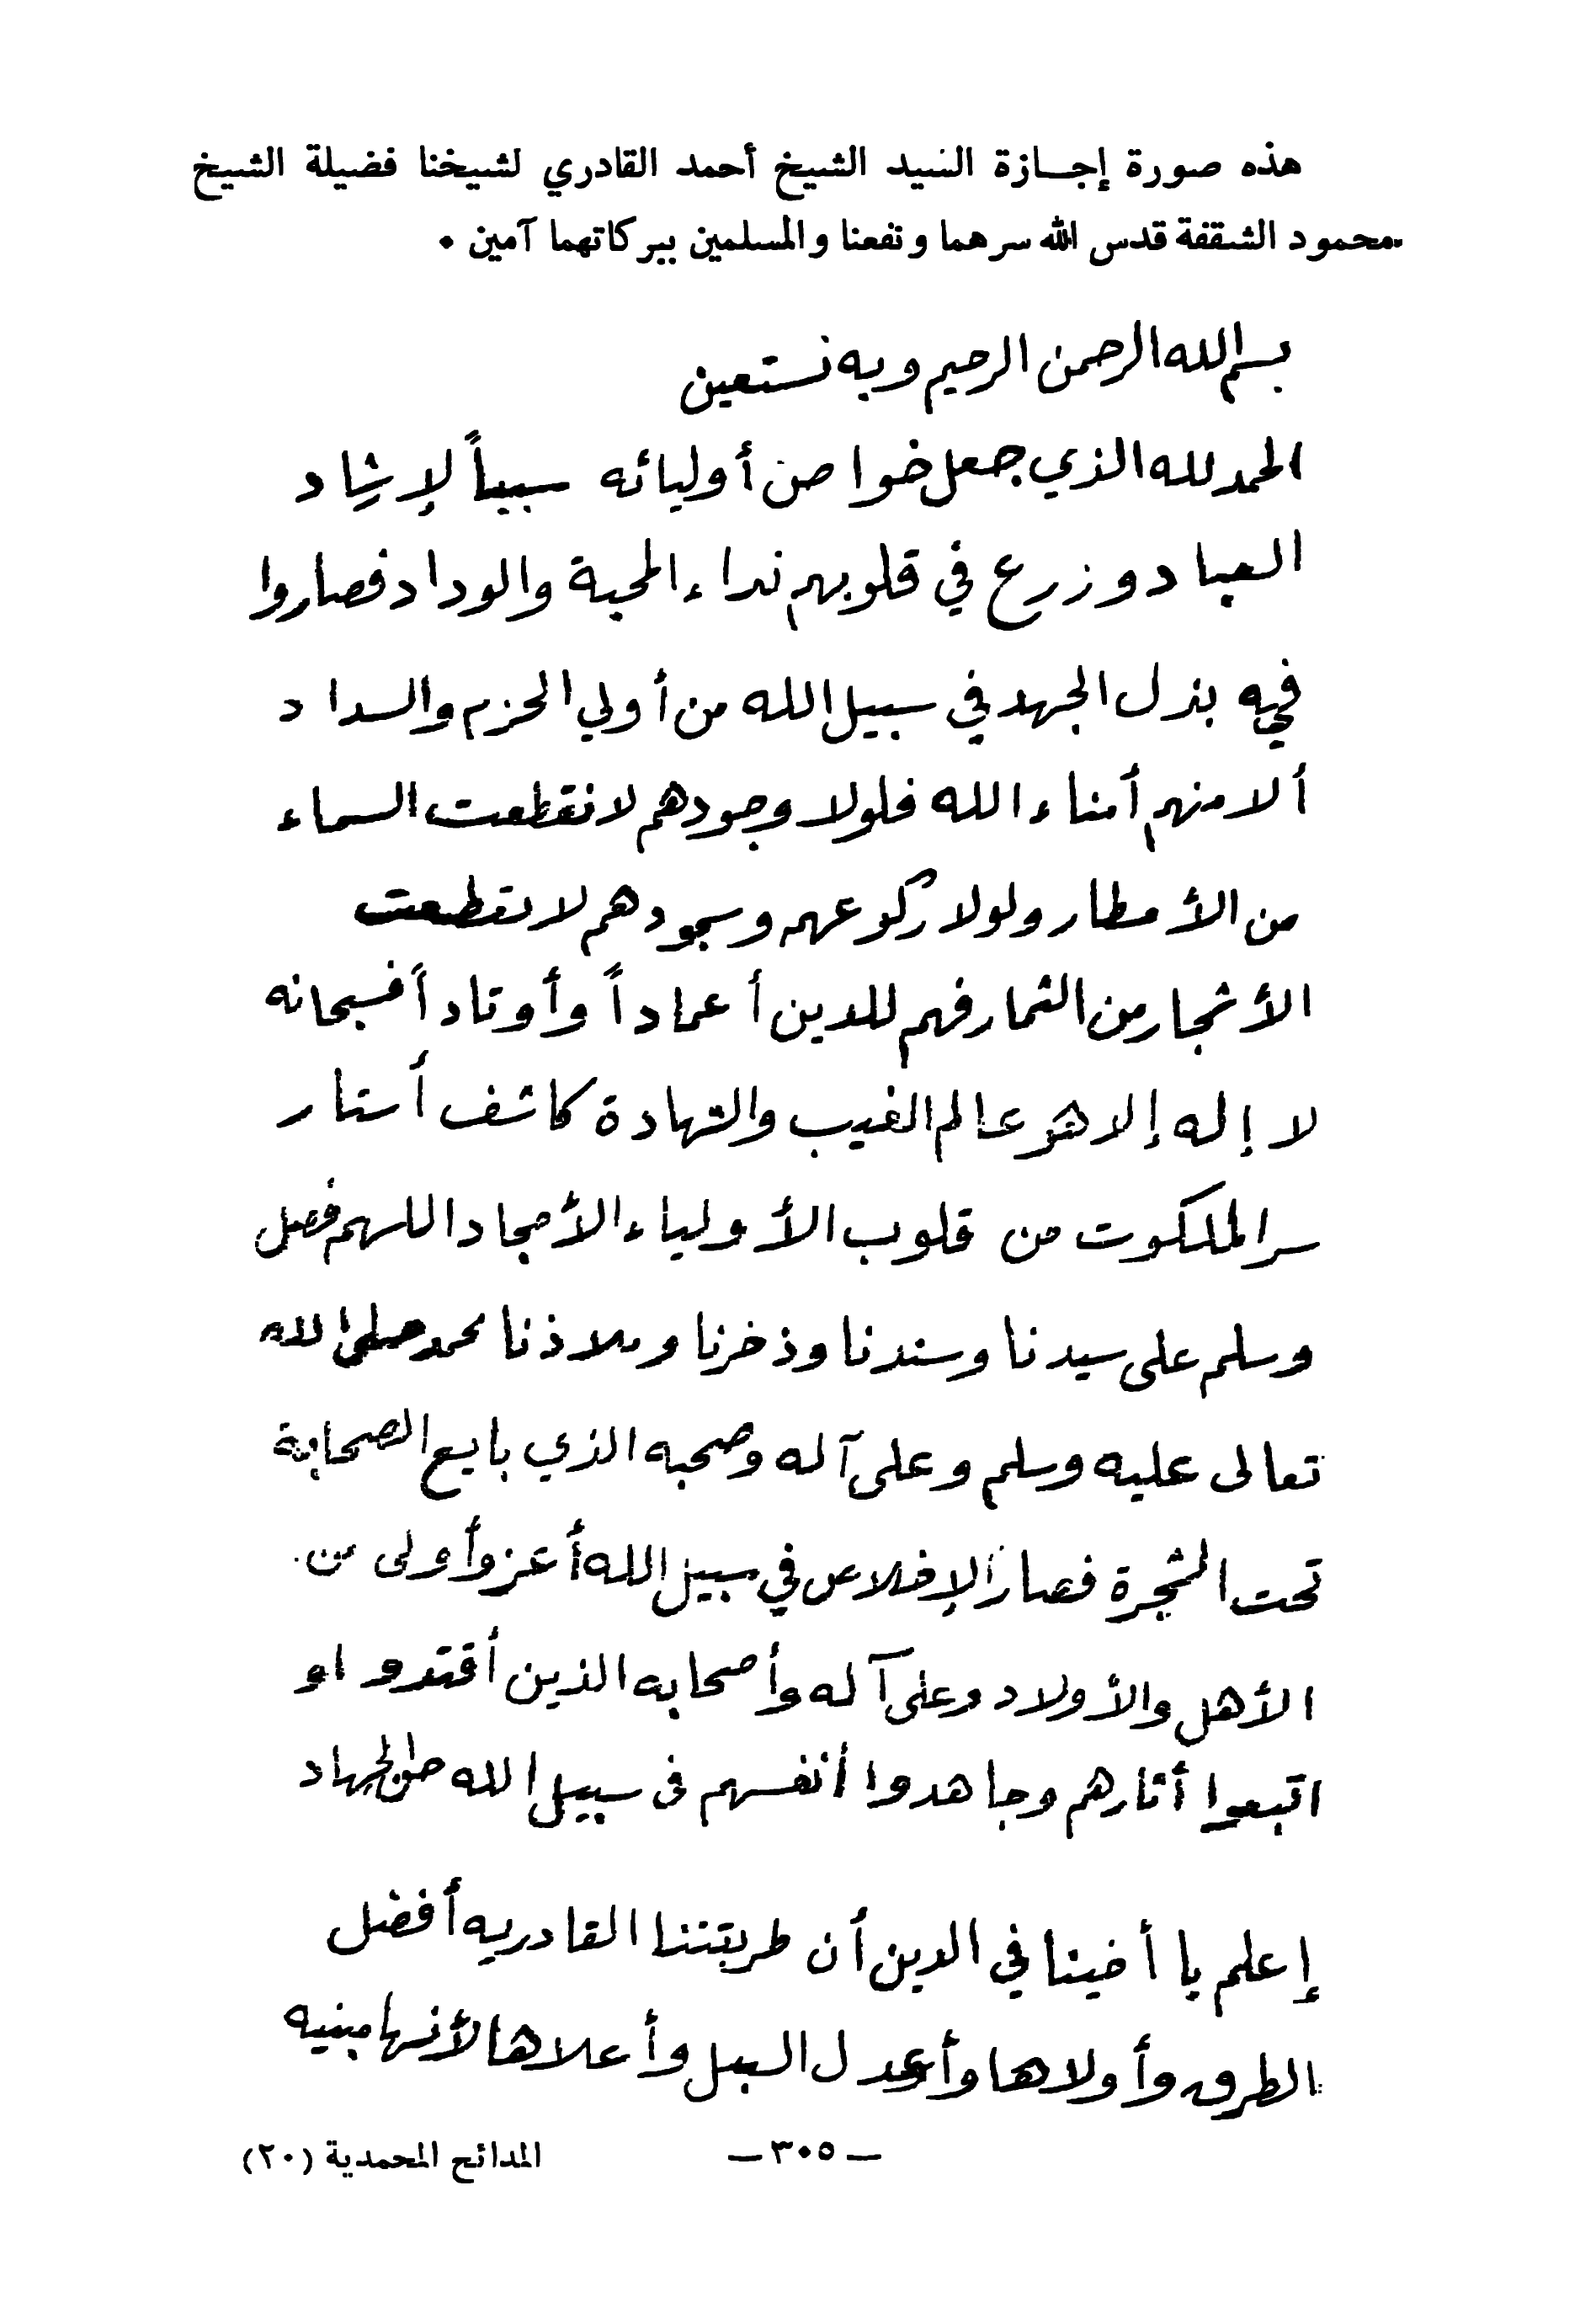 هذه صورة إجـــازة السيد الشيخ أحمد القادري لشيخنا فضيلة الشيخ
محمود الشقفة قدس الله سرهما ونفعنا والمسلمين ببركاتهما آمين .
بسم الله الرحمن الرحيم وبه نستعين
الحمد لله الذي جعل خواص من أوليائه سبباً لإرشاد
العباد وزرع في قلوبهم نداء المحبة والوداد فصاروا
فيه بذل الجهد في سبيل الله من أولي الحزم والسداد
ألا منهم أمناء الله فلولا وجودهم لانقطعت السماء
من الأمطار ولولا ركوعهم وسجودهم لانقطعت
الأشجار من الثمار فهم للدين أعماداً وأوتاداً فسبحانه
لا إله إلا هو عالم الغيب والشهادة كاشف أستار
سر الملكوت من قلوب الأولياء الأمجاد اللهم فصل
وسلم على سيدنا وسندنا وذخرنا وملاذنا محمد صلى الله
تعالى عليه وسلم وعلى آله وصحبه الذي بايع الصحابة
تحت الشجرة فصار الإخلاص في سبيل الله أعز وأولى من
الأهل والأولاد وعلى آله وأصحابه الذين أقتدوا و
اتبعوا أثارهم وجاهدوا أنفسهم في سبيل الله حق الجهاد
إعلم يا أخينا في الدين أن طريقتنا القادريه أفضل
الطرق وأولاها وأعدل السبل وأعلاها لأنها مبنيه
— ٣٠٥ —
المدائح المحمدية (٢٠)